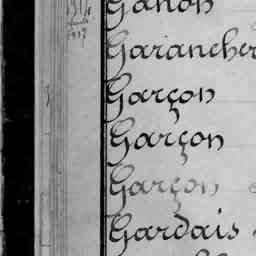 Ganon
Garancher
Garçon
Garçon
Garçon
Gardais